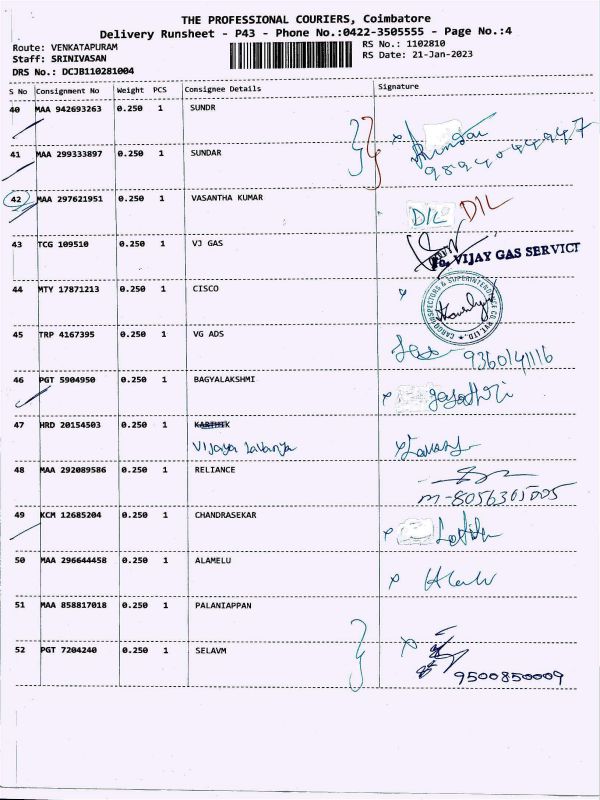 THE PROFESSIONAL COURIERS, Coimbatore
Delivery Runsheet - P43 - Phone No.:0422-3505555 - Page No.:4
Route: VENKATAPURAM
Staff: SRINIVASAN
DRS No.: DCJB110281004
RS No.: 1102810
RS Date: 21-Jan-2023
S No Consignment No Weight PCS Consignee Details Signature
40 MAA 942693263 0.250 1 SUNDR
41 MAA 299333897 0.250 1 SUNDAR
42 MAA 297621951 0.250 1 VASANTHA KUMAR DIL DIL
43 TCG 109510 0.250 1 VJ GAS
VIJAY GAS SERVICT
44 MTY 17871213 0.250 1 CISCO
45 TRP 4167395 0.250 1 VG ADS
46 PGT 5904950 0.250 1 BAGYALAKSHMI
47 HRD 20154503 0.250 1 KARTHIK
Vijaya Lavanja
48 MAA 292089586 0.250 1 RELIANCE
m-8056305005
49 KCM 12685204 0.250 1 CHANDRASEKAR
50 MAA 296644458 0.250 1 ALAMELU
51 MAA 858817018 0.250 1 PALANIAPPAN
52 PGT 7204240 0.250 1 SELAVM
9500850009